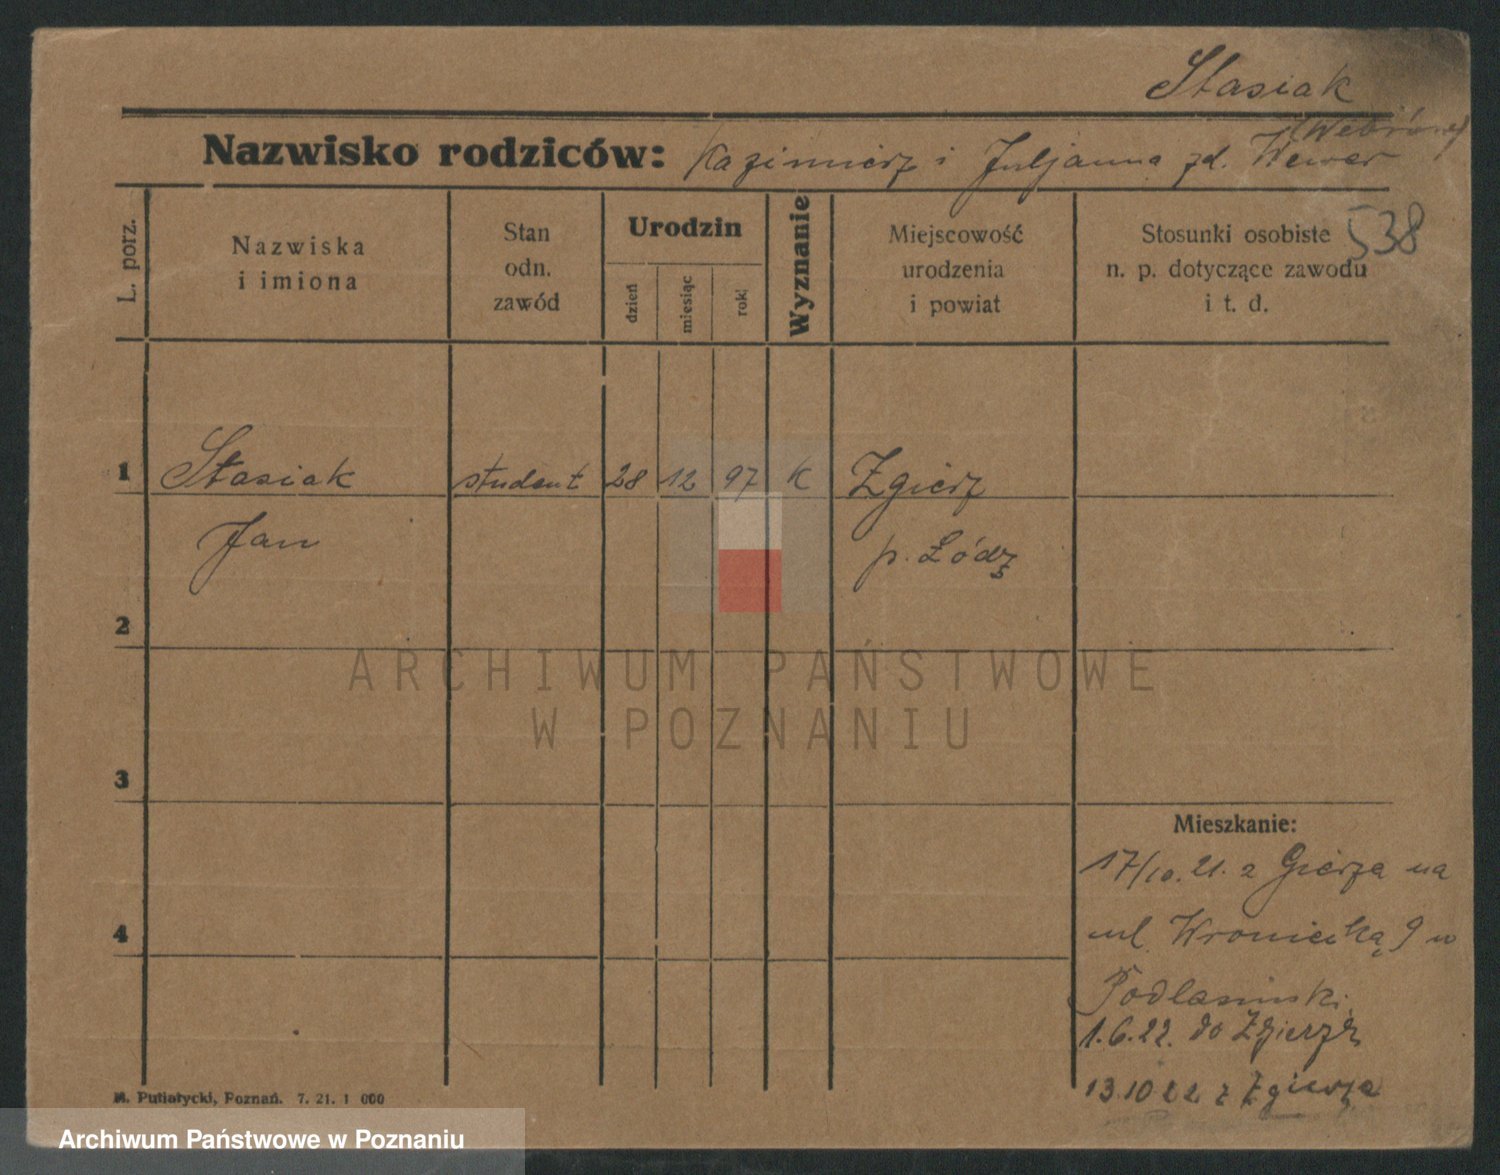 Stasiak
Nazwisko rodziców: Kazimierz i Juljanna zd. Wewer
538
L. porz.
Nazwiska i imiona
Stan odn. zawód
Urodzin
dzień
miesiąc
rok
Wyznanie
Miejscowość urodzenia i powiat
Stosunki osobiste n. p. dotyczące zawodu i t. d.
1 Stasiak student 28 12 97 K Zgierz
Jan p. Łódź
2
ARCHIWUM PAŃSTWOWE
W POZNANIU
3
Mieszkanie:
17/10. 21. z Gierza na
ul. Wroniecką 9 u
4
Podlasinski
1.6.22. do Zgierza
13.10 22 z Zgierza
M. Putiatycki, Poznań. 7. 21. 1 000
Archiwum Państwowe w Poznaniu